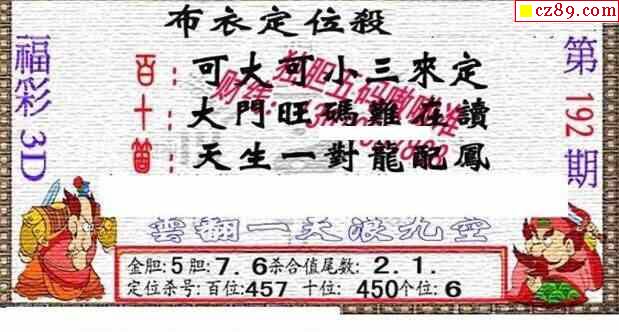 cz89.com
布衣定位殺
福彩3D
第192期
百：可大可小三來定
十：大門旺碼難在讀
個：天生一對龍配鳳
獨胆五码
雲翻一天浪九空
金胆:5胆:7.6杀合值尾数:2.1.
定位杀号:百位:457 十位:450个位:6